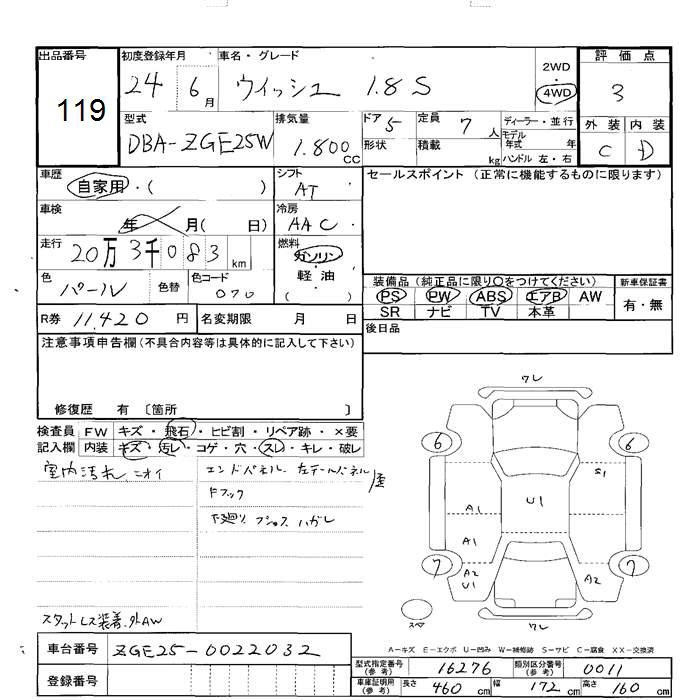 出品番号 119
初度登録年月 24 6月
車名・グレード ウィッシュ 1.8 S
2WD
4WD
評価点 3
外装 内装
C D
型式 DBA-ZGE25W
排気量 1.800 CC
ドア 5
形状
定員 7 人
積載 kg
ディーラー・並行
モデル年式 年
ハンドル 左・右
車歴 自家用・( )
シフト AT
セールスポイント (正常に機能するものに限ります)
車検 年 月( 日)
冷房 AAC
走行 20万3千083 km
燃料 ガソリン
軽油
( )
色 パール 色替
色コード 070
装備品 (純正品に限り○をつけてください)
新車保証書
PS PW ABS エアB AW
有・無
SR ナビ TV 本革
R券 11,420 円
名変期限 月 日
後日品
注意事項申告欄(不具合内容等は具体的に記入して下さい)
修復歴 有 〔箇所 〕
検査員記入欄
FW キズ・飛石・ヒビ割・リペア跡・×要
内装 キズ・汚レ・コゲ・穴・スレ・キレ・破レ
室内汚れ、ニオイ
エンドパネル、左テールパネル
Fフック
下廻り ハガレ
スタットレス装着、外AW
ワレ
6 6
S1
U1
A1
A1
7 7
A2 U1
A2
スペ
ワレ
A-キズ E-エクボ U-凹み W-補修跡 S-サビ C-腐食 XX-交換済
車台番号 ZGE25-0022032
登録番号
型式指定番号(参考) 16276
類別区分番号(参考) 0011
車庫証明用(参考) 長さ 460 cm 幅 172 cm 高さ 160 cm